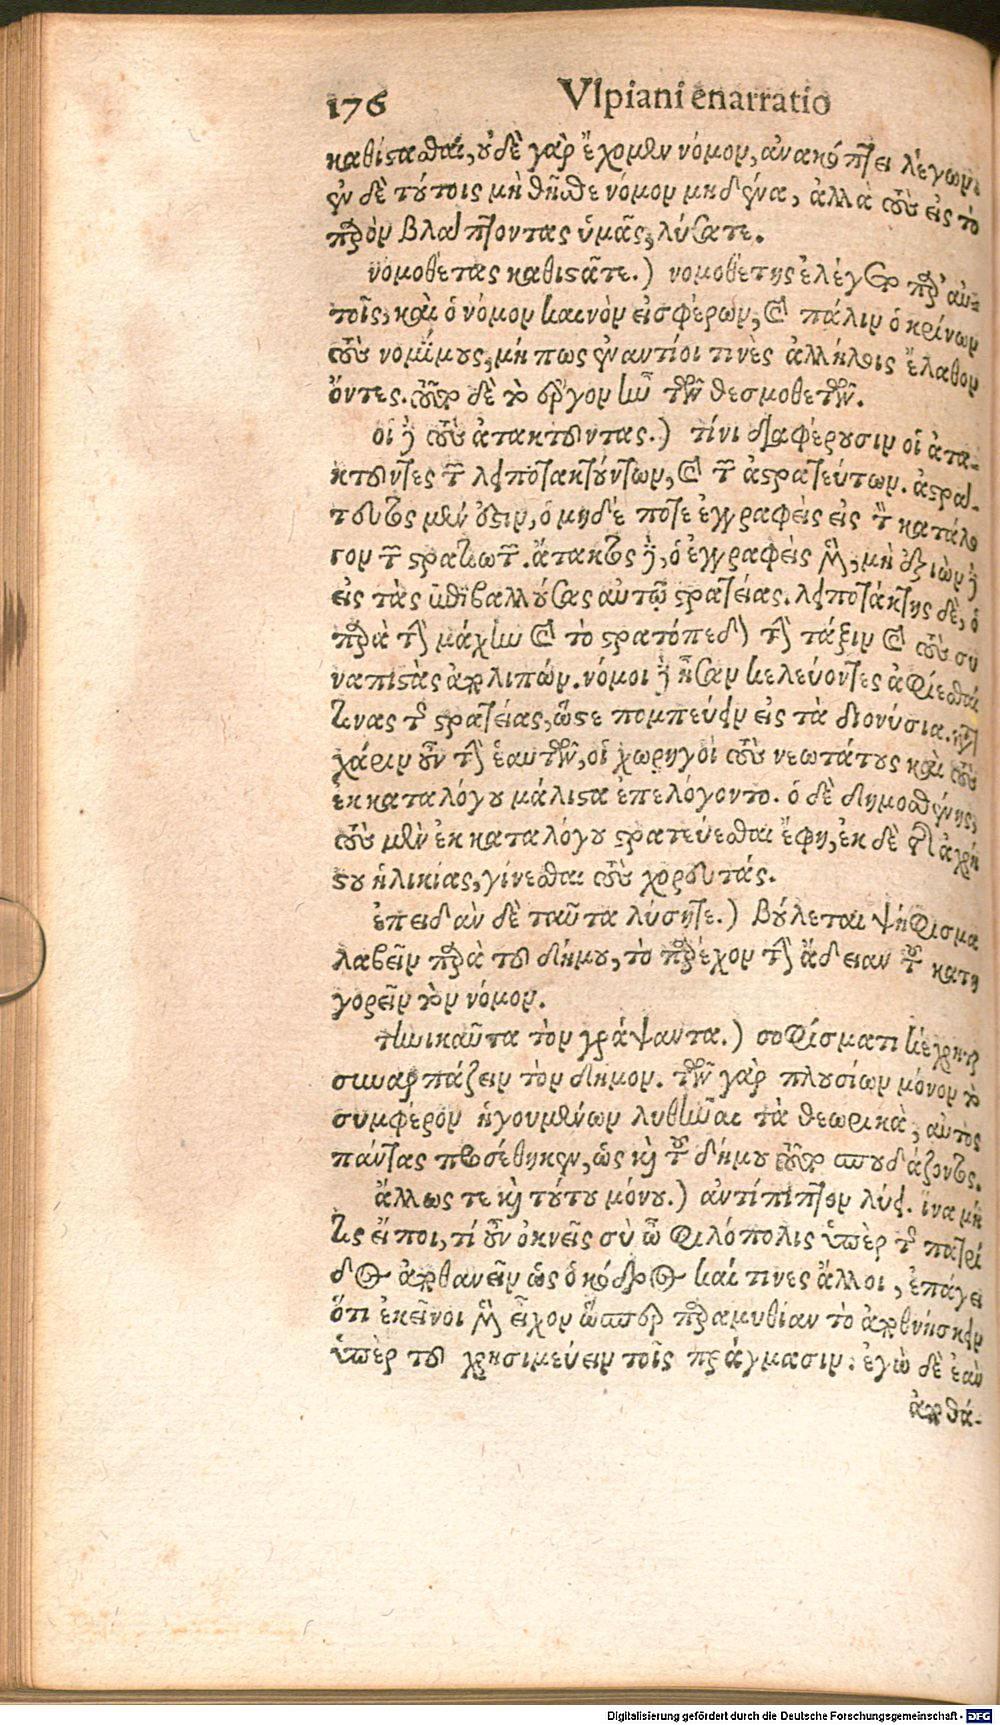 176 Vlpiani enarratio
καθίστασθαι, οὐδὲ γὰρ ἔχομεν νόμον, ἀνακόπτει λέγων.
ἐν δὲ τούτοις μὴ θῆσθε νόμον μηδένα, ἀλλὰ τοὺς εἰς τὸ
παρὸν βλάπτοντας ὑμᾶς, λύσατε.
νομοθέτας καθιστᾶτε.) νομοθέτης ἐλέγετο παρ' αὐ-
τοῖς, καὶ ὁ νόμον καινὸν εἰσφέρων, καὶ πάλιν ὁ κρίνων
τοὺς νομίμους, μή πως ἐναντίοι τινὲς ἀλλήλοις ἔλαθον
ὄντες. τοῦτο δὲ τὸ ἔργον ἦν τῶν θεσμοθετῶν.
οἱ δὲ τοὺς ἀτακτοῦντας.) τίνι διαφέρουσιν οἱ ἀτα-
κτοῦντες τῶν λειποτακτούντων, καὶ τῶν ἀστρατεύτων. ἀστρά-
τευτος μέν ἐστιν, ὁ μηδέ ποτε ἐγγραφεὶς εἰς τὸν κατάλο
γον τῶν στρατιωτῶν. ἄτακτος δὲ, ὁ ἐγγραφεὶς μὲν, μὴ ἐξιὼν δὲ
εἰς τὰς ἐπιβαλλούσας αὐτῷ στρατείας. λειποτάκτης δὲ, ὁ
παρὰ τὴν μάχην καὶ τὸ στρατόπεδον τὴν τάξιν καὶ τοὺς συ
ναπιστὰς ἀπολιπών. νόμοι δὲ ἦσαν κελεύοντες ἀφίεσθαί
τινας τῆς στρατείας, ὥστε πομπεύειν εἰς τὰ διονύσια.
χάριν οὖν τὴν ἑαυτῶν, οἱ χωρηγοὶ τοὺς νεωτάτους καὶ τοὺς
ἐκ καταλόγου μάλιστα ἐπελόγοντο. ὁ δὲ δημοσθένης,
τοὺς μὲν ἐκ καταλόγου στρατεύεσθαι ἔφη, ἐκ δὲ τῆς ἀχρή
στου ἡλικίας, γίνεσθαι τοὺς χορευτάς.
ἐπειδὰν δὲ ταῦτα λύσητε.) βούλεται ψήφισμα
λαβεῖν παρὰ τοῦ δήμου, τὸ παρέχον τὴν ἄδειαν τοῦ κατη
γορεῖν τὸν νόμον.
τηνικαῦτα τὸν γράψαντα.) σοφίσματι κέχρηται
συναρπάζειν τὸν δῆμον. τῶν γὰρ πλουσίων μόνον τὸ
συμφέρον ἡγουμένων λυθῆναι τὰ θεωρικὰ, αὐτος
πάντας προσέθηκεν, ὡς καὶ τοῦ δήμου τοῦτο σπουδάζοντος.
ἄλλως τε καὶ τούτου μόνου.) ἀντίπιπτον λύει. ἵνα μή
τις εἴποι, τί οὖν ὀκνεῖς σὺ ὦ φιλόπολις ὑπὲρ τῆς πατρί
δος ἀποθανεῖν ὡς ὁ κόδρος καί τινες ἄλλοι, ἐπάγει
ὅτι ἐκεῖνοι μὲν εἶχον ὥσπερ παραμυθίαν τὸ ἀποθνήσκειν
ὑπὲρ τοῦ χρησιμεύειν τοῖς πράγμασιν. ἐγὼ δὲ ἐὰν
ἀποθά-
Digitalisierung gefördert durch die Deutsche Forschungsgemeinschaft - DFG